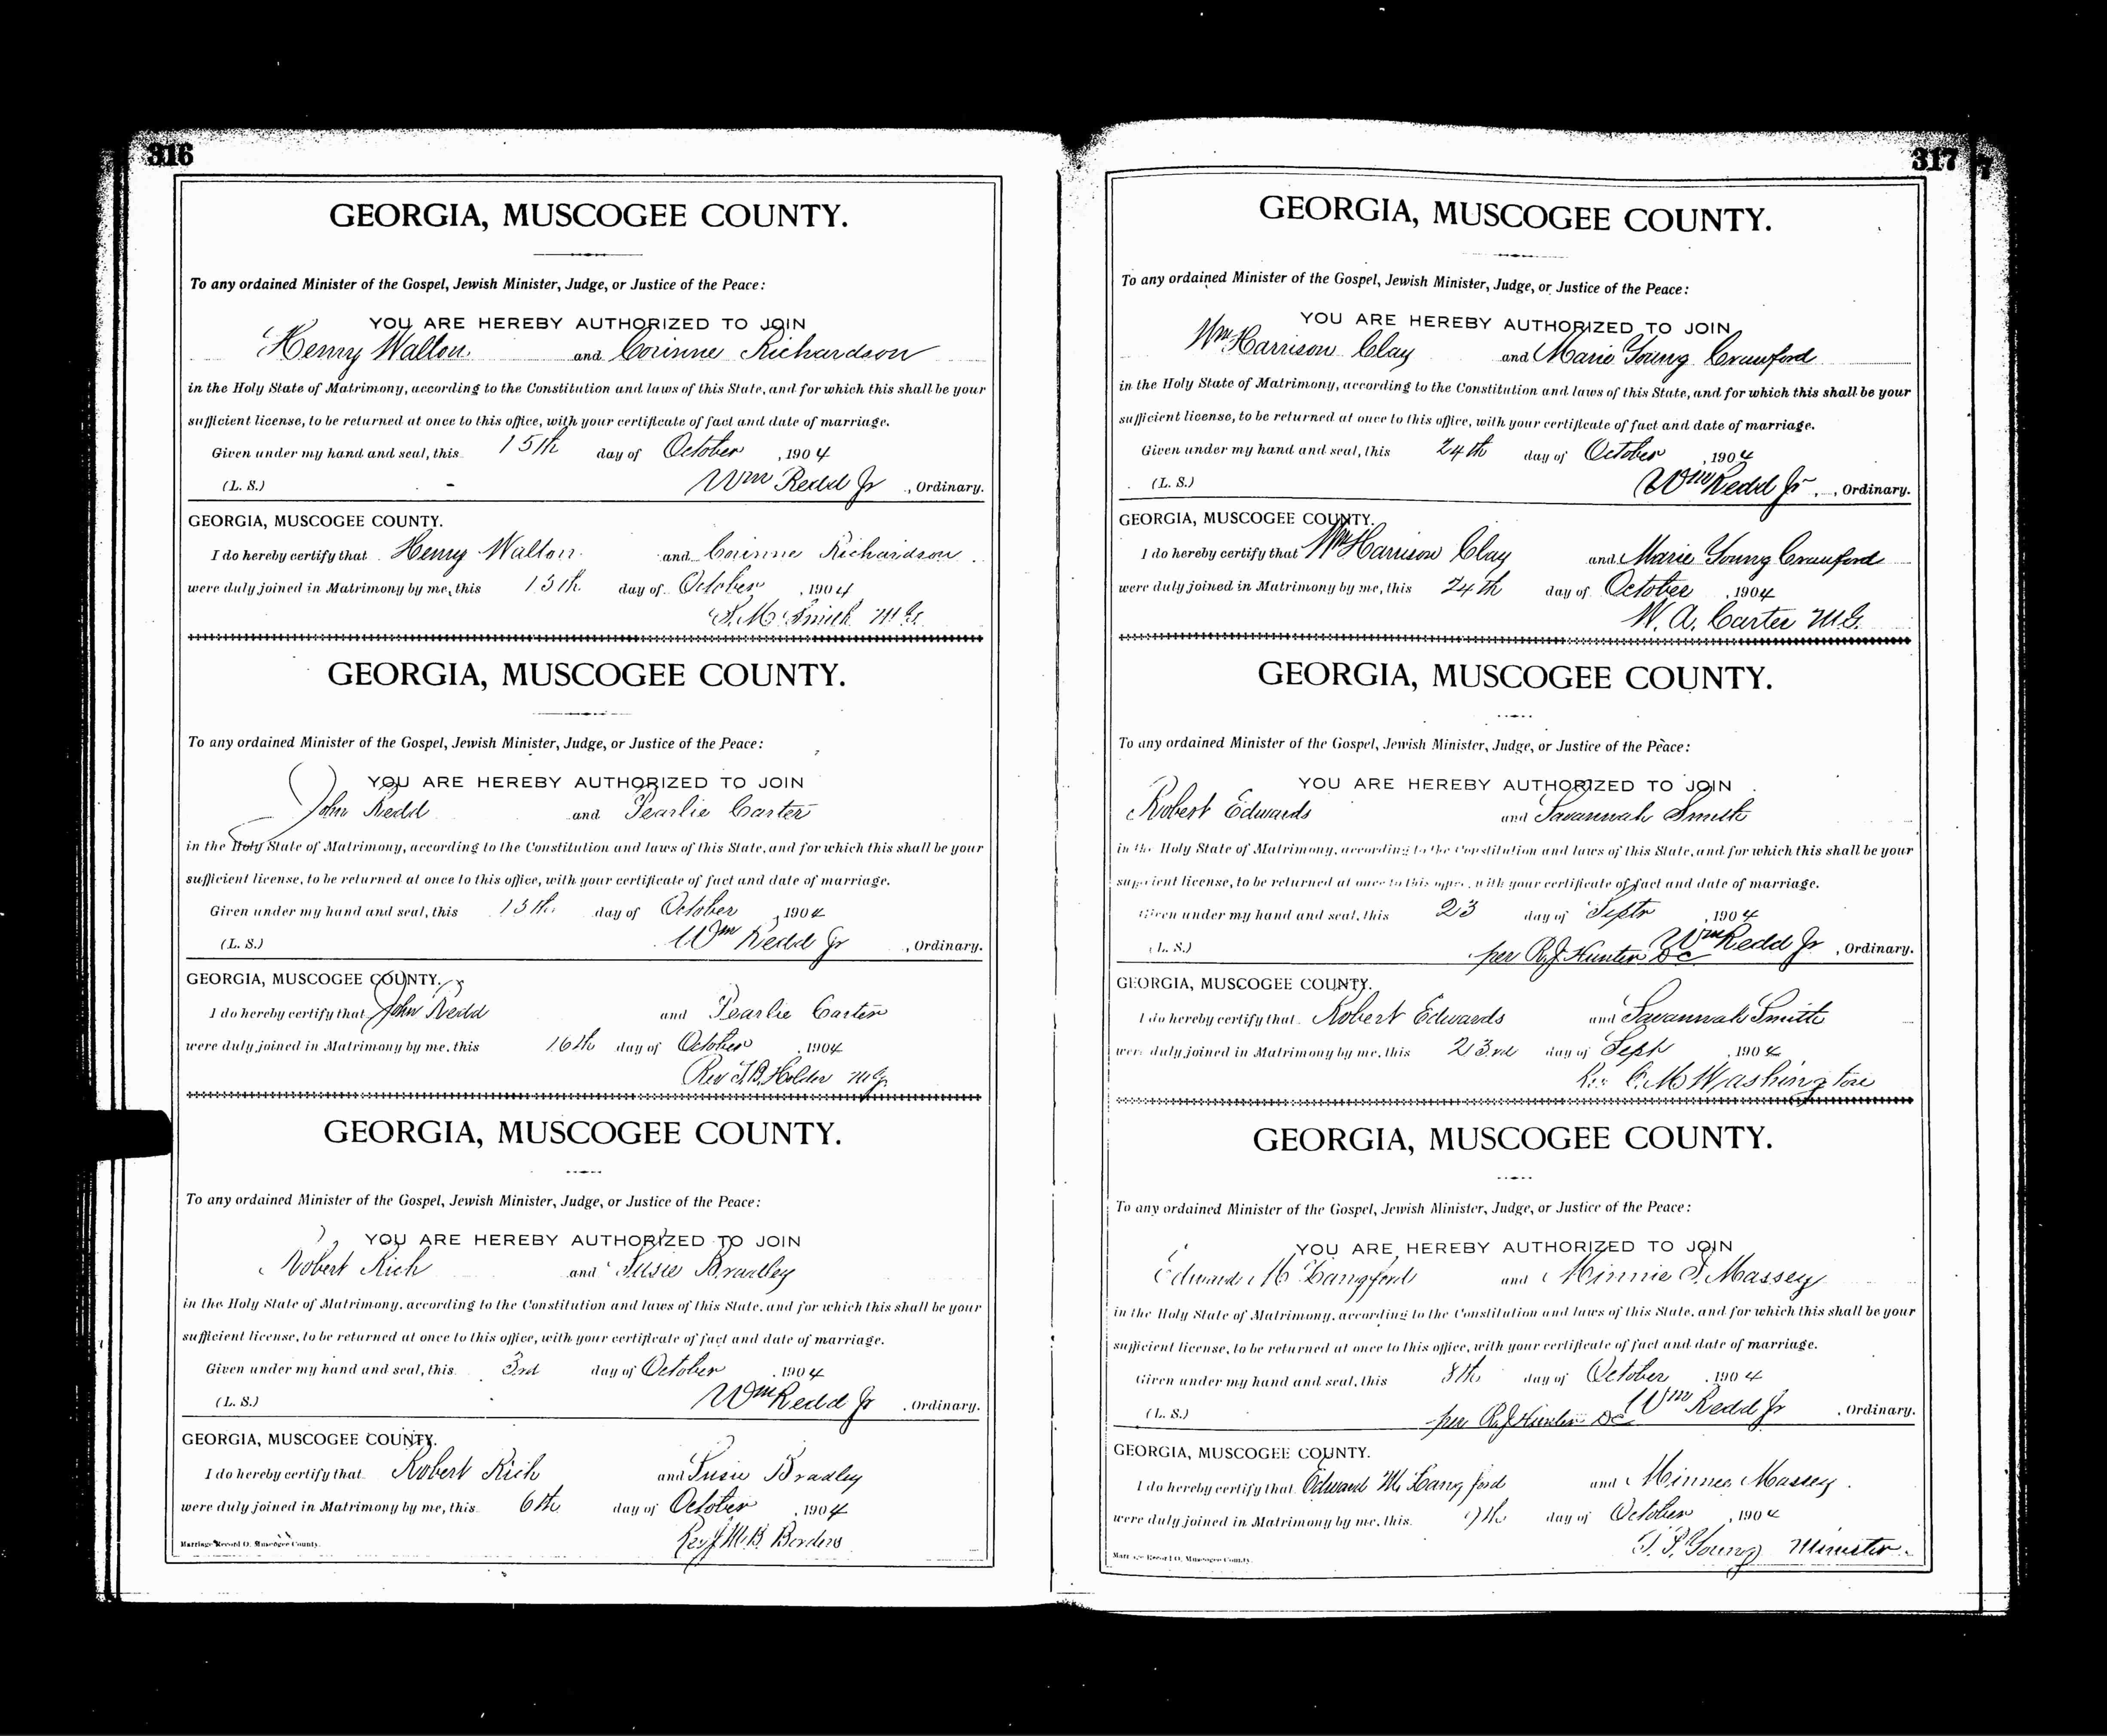 316
GEORGIA, MUSCOGEE COUNTY.
To any ordained Minister of the Gospel, Jewish Minister, Judge, or Justice of the Peace:
YOU ARE HEREBY AUTHORIZED TO JOIN
Henry Walton and Corinne Richardson
in the Holy State of Matrimony, according to the Constitution and laws of this State, and for which this shall be your
sufficient license, to be returned at once to this office, with your certificate of fact and date of marriage.
Given under my hand and seal, this 15th day of October, 1904
(L. S.) Wm Redd Jr, Ordinary.
GEORGIA, MUSCOGEE COUNTY.
I do hereby certify that Henry Walton and Corinne Richardson
were duly joined in Matrimony by me, this 15th day of October, 1904
S. M. Smith M G.
GEORGIA, MUSCOGEE COUNTY.
To any ordained Minister of the Gospel, Jewish Minister, Judge, or Justice of the Peace:
YOU ARE HEREBY AUTHORIZED TO JOIN
John Redd and Pearlie Carter
in the Holy State of Matrimony, according to the Constitution and laws of this State, and for which this shall be your
sufficient license, to be returned at once to this office, with your certificate of fact and date of marriage.
Given under my hand and seal, this 15th day of October, 1904
(L. S.) Wm Redd Jr, Ordinary.
GEORGIA, MUSCOGEE COUNTY.
I do hereby certify that John Redd and Pearlie Carter
were duly joined in Matrimony by me, this 16th day of October, 1904
Rev Holder M G.
GEORGIA, MUSCOGEE COUNTY.
To any ordained Minister of the Gospel, Jewish Minister, Judge, or Justice of the Peace:
YOU ARE HEREBY AUTHORIZED TO JOIN
Robert Rich and Susie Bradley
in the Holy State of Matrimony, according to the Constitution and laws of this State, and for which this shall be your
sufficient license, to be returned at once to this office, with your certificate of fact and date of marriage.
Given under my hand and seal, this 3rd day of October, 1904
(L. S.) Wm Redd Jr, Ordinary.
GEORGIA, MUSCOGEE COUNTY.
I do hereby certify that Robert Rich and Susie Bradley
were duly joined in Matrimony by me, this 6th day of October, 1904
Rev J. M. B. Borders
Marriage Record O, Muscogee County.
317
GEORGIA, MUSCOGEE COUNTY.
To any ordained Minister of the Gospel, Jewish Minister, Judge, or Justice of the Peace:
YOU ARE HEREBY AUTHORIZED TO JOIN
Wm Harrison Clay and Marie Young Crawford
in the Holy State of Matrimony, according to the Constitution and laws of this State, and for which this shall be your
sufficient license, to be returned at once to this office, with your certificate of fact and date of marriage.
Given under my hand and seal, this 24th day of October, 1904
(L. S.) Wm Redd Jr, Ordinary.
GEORGIA, MUSCOGEE COUNTY.
I do hereby certify that Wm Harrison Clay and Marie Young Crawford
were duly joined in Matrimony by me, this 24th day of October, 1904
W. A. Carter M.G.
GEORGIA, MUSCOGEE COUNTY.
To any ordained Minister of the Gospel, Jewish Minister, Judge, or Justice of the Peace:
YOU ARE HEREBY AUTHORIZED TO JOIN
Robert Edwards and Savannah Smith
in the Holy State of Matrimony, according to the Constitution and laws of this State, and for which this shall be your
sufficient license, to be returned at once to this office, with your certificate of fact and date of marriage.
Given under my hand and seal, this 23 day of Septr, 1904
(L. S.) per R. J. Hunter DC Wm Redd Jr, Ordinary.
GEORGIA, MUSCOGEE COUNTY.
I do hereby certify that Robert Edwards and Savannah Smith
were duly joined in Matrimony by me, this 23rd day of Sept, 1904
Rev C. M Washington
GEORGIA, MUSCOGEE COUNTY.
To any ordained Minister of the Gospel, Jewish Minister, Judge, or Justice of the Peace:
YOU ARE HEREBY AUTHORIZED TO JOIN
Edward M Langford and Minnie S. Massey
in the Holy State of Matrimony, according to the Constitution and laws of this State, and for which this shall be your
sufficient license, to be returned at once to this office, with your certificate of fact and date of marriage.
Given under my hand and seal, this 8th day of October, 1904
(L. S.) per R. J. Hunter DC Wm Redd Jr, Ordinary.
GEORGIA, MUSCOGEE COUNTY.
I do hereby certify that Edward M. Langford and Minnie Massey.
were duly joined in Matrimony by me, this 9th day of October, 1904
Young Minister.
Marriage Record O, Muscogee County.